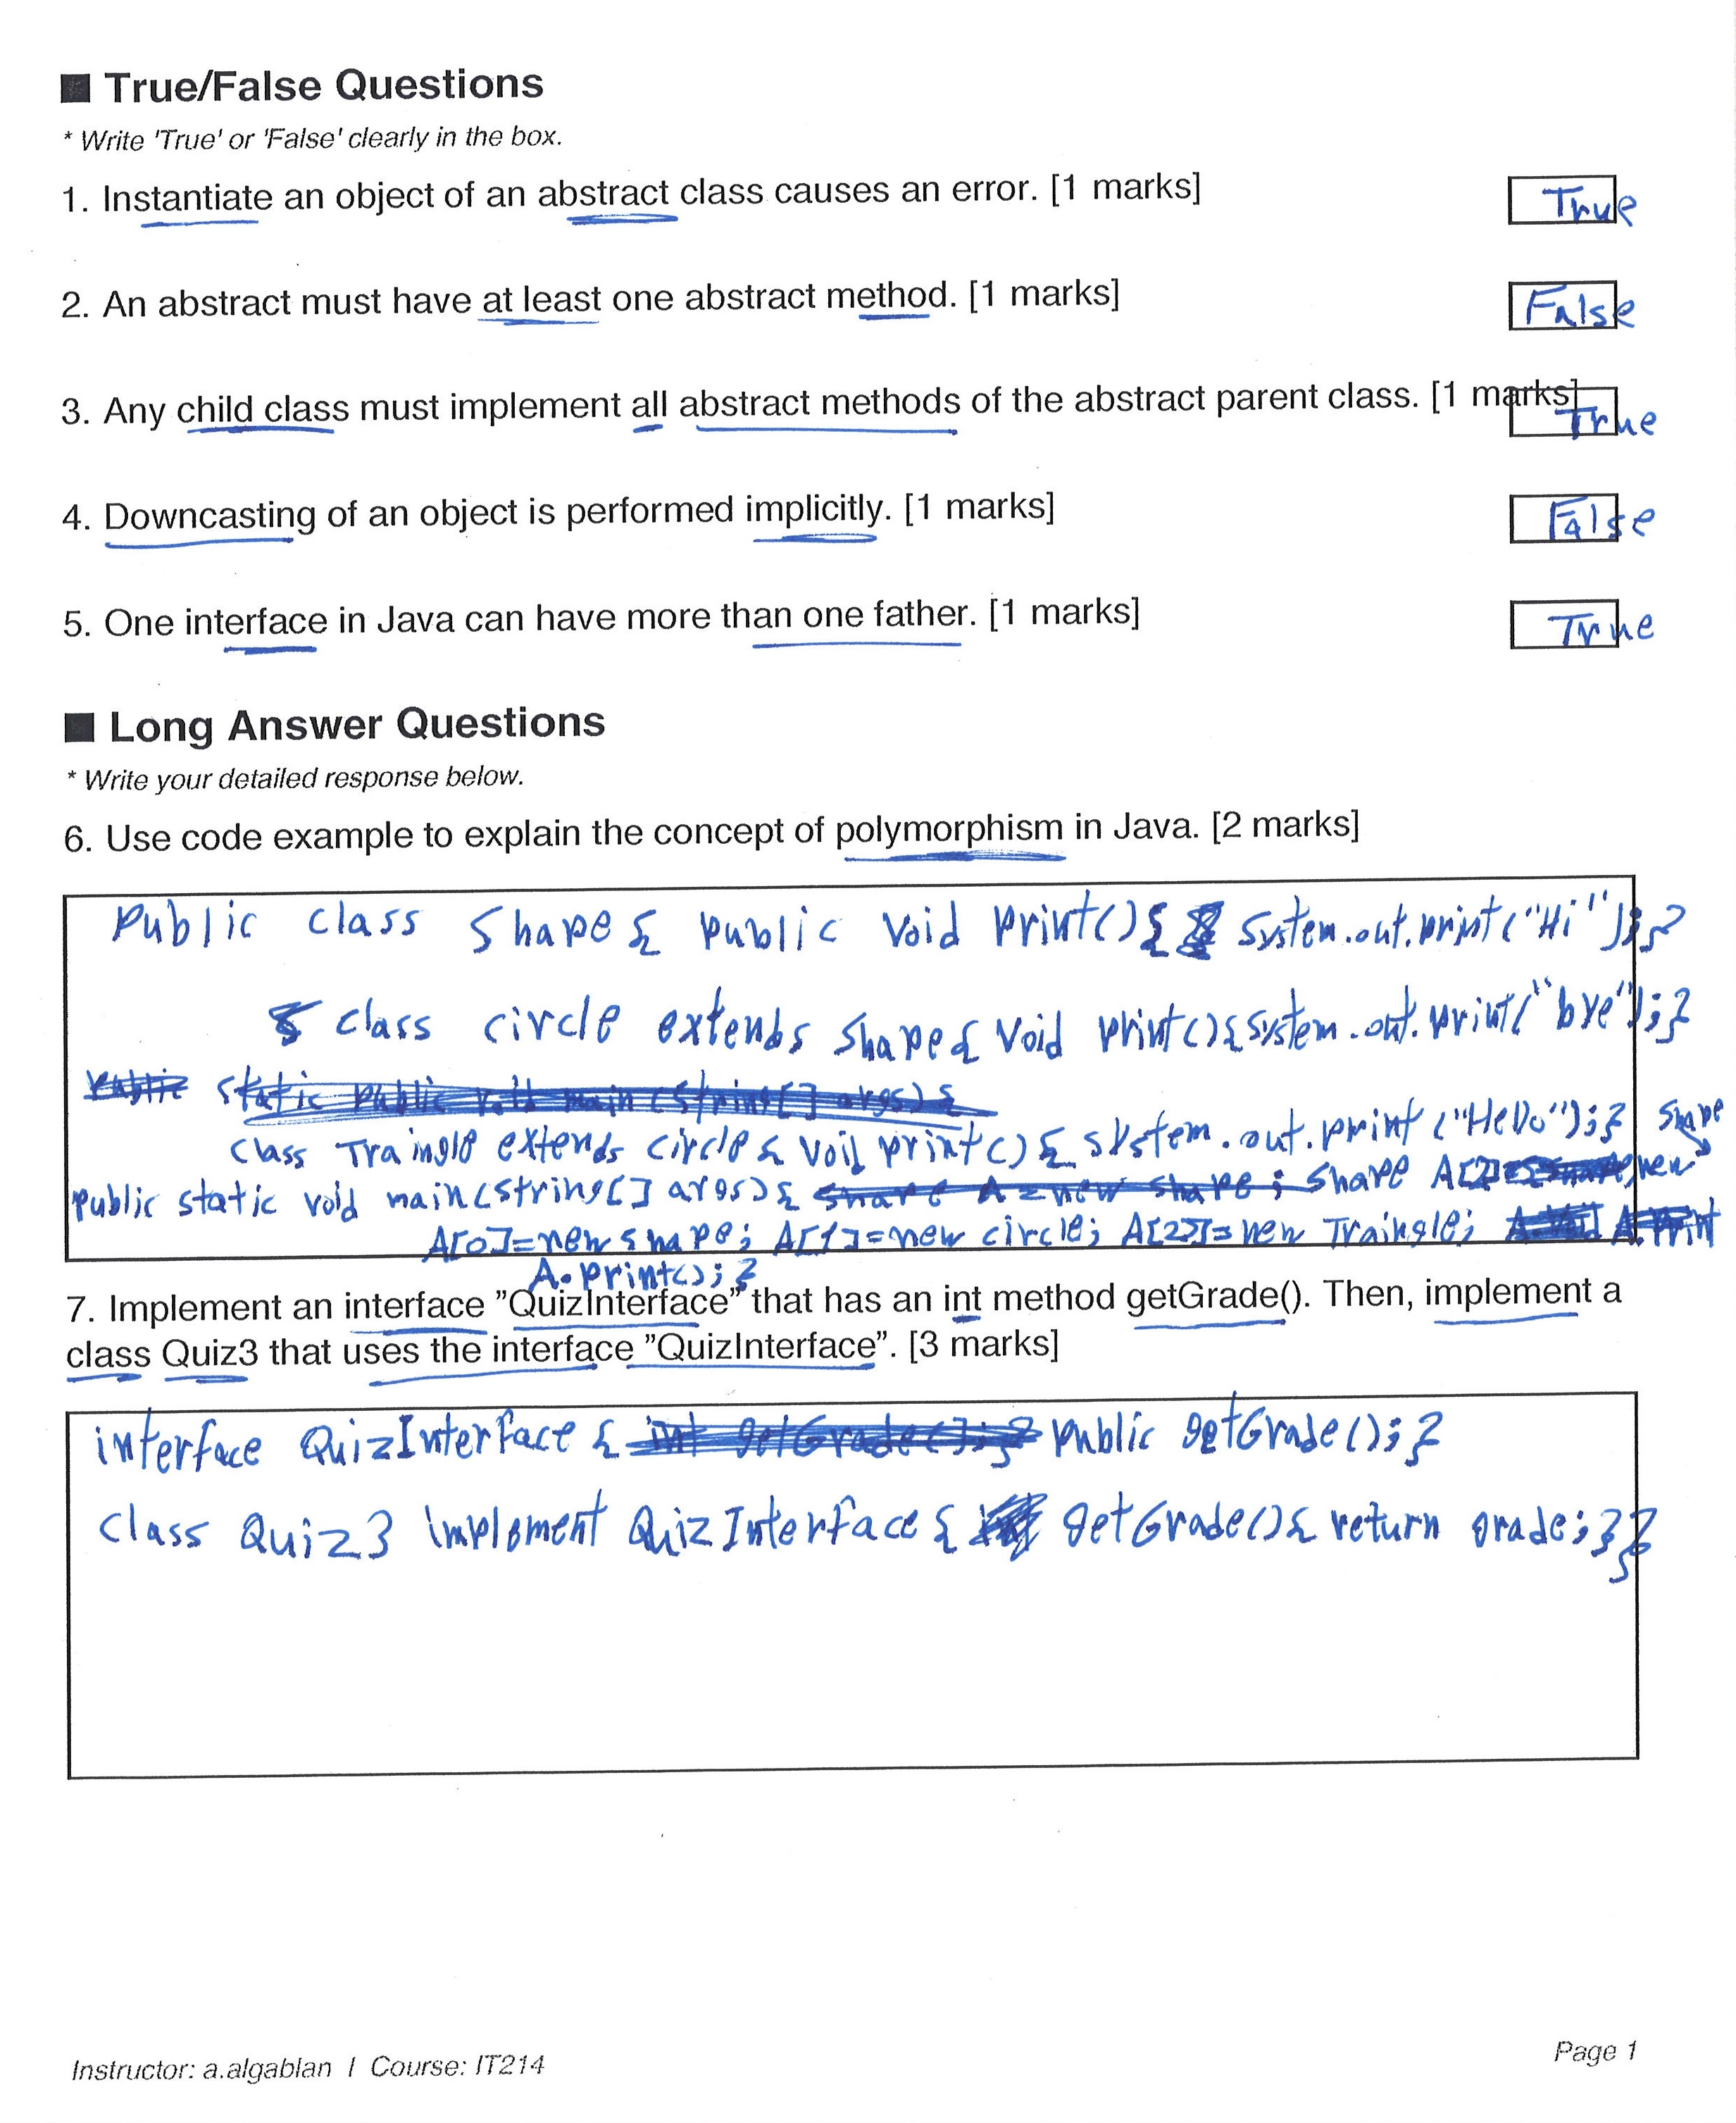 ■ True/False Questions
* Write 'True' or 'False' clearly in the box.
1. Instantiate an object of an abstract class causes an error. [1 marks] True
2. An abstract must have at least one abstract method. [1 marks] False
3. Any child class must implement all abstract methods of the abstract parent class. [1 marks] True
4. Downcasting of an object is performed implicitly. [1 marks] False
5. One interface in Java can have more than one father. [1 marks] True
■ Long Answer Questions
* Write your detailed response below.
6. Use code example to explain the concept of polymorphism in Java. [2 marks]
Public class Shape{ public void print(){ System.out.print("Hi");}
class circle extends shape{ void print(){system.out.print("bye");}
Public static public void main(String[] args){
class Traingle extends circle{ void print(){ system.out.print("Hello");} shape
Public static void main(string[] args){ share A = new shape; share A[2] new
A[0]=new shape; A[1]=new circle; A[2]=new Traingle; A.Print
A.print();}
7. Implement an interface ”QuizInterface” that has an int method getGrade(). Then, implement a
class Quiz3 that uses the interface ”QuizInterface”. [3 marks]
interface QuizInterface { int getGrade();} public getGrade();}
class Quiz3 implement QuizInterface { int getGrade(){ return grade;}}
Instructor: a.algablan | Course: IT214
Page 1